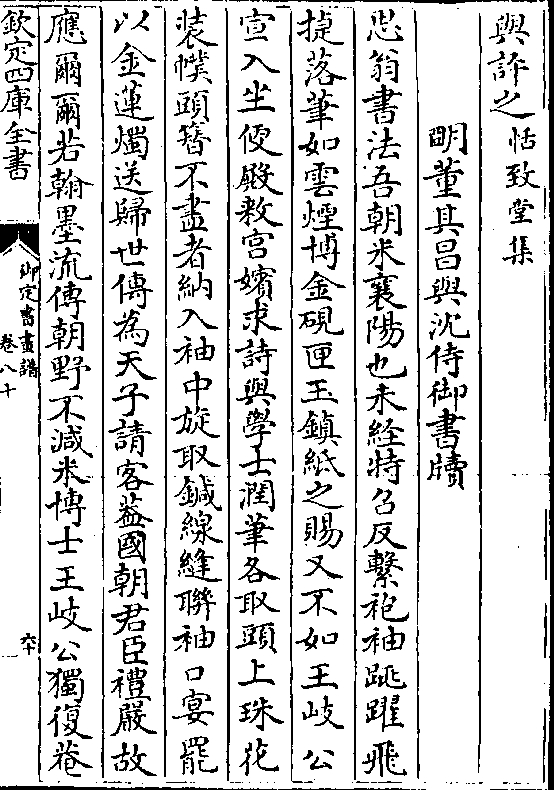 與許之恬致堂集
明董其昌與沈侍御書牘
思翁書法吾朝米襄陽也未經特召反繫袍袖跳躍飛
㨗落筆如雲煙博金硯匣玉鎮紙之賜又不如王歧公
宣入坐便殿敕宮嬪求詩與學士潤筆各取頭上珠花
裝幞頭簪不盡者納入袖中旋取鍼線縫聯袖口宴罷
以金蓮燭送歸世傳為天子請客葢國朝君臣禮嚴故
應爾爾若翰墨流傳朝野不減米博士王歧公獨復菴
欽定四庫全書
御定書畫譜
卷八十
六十